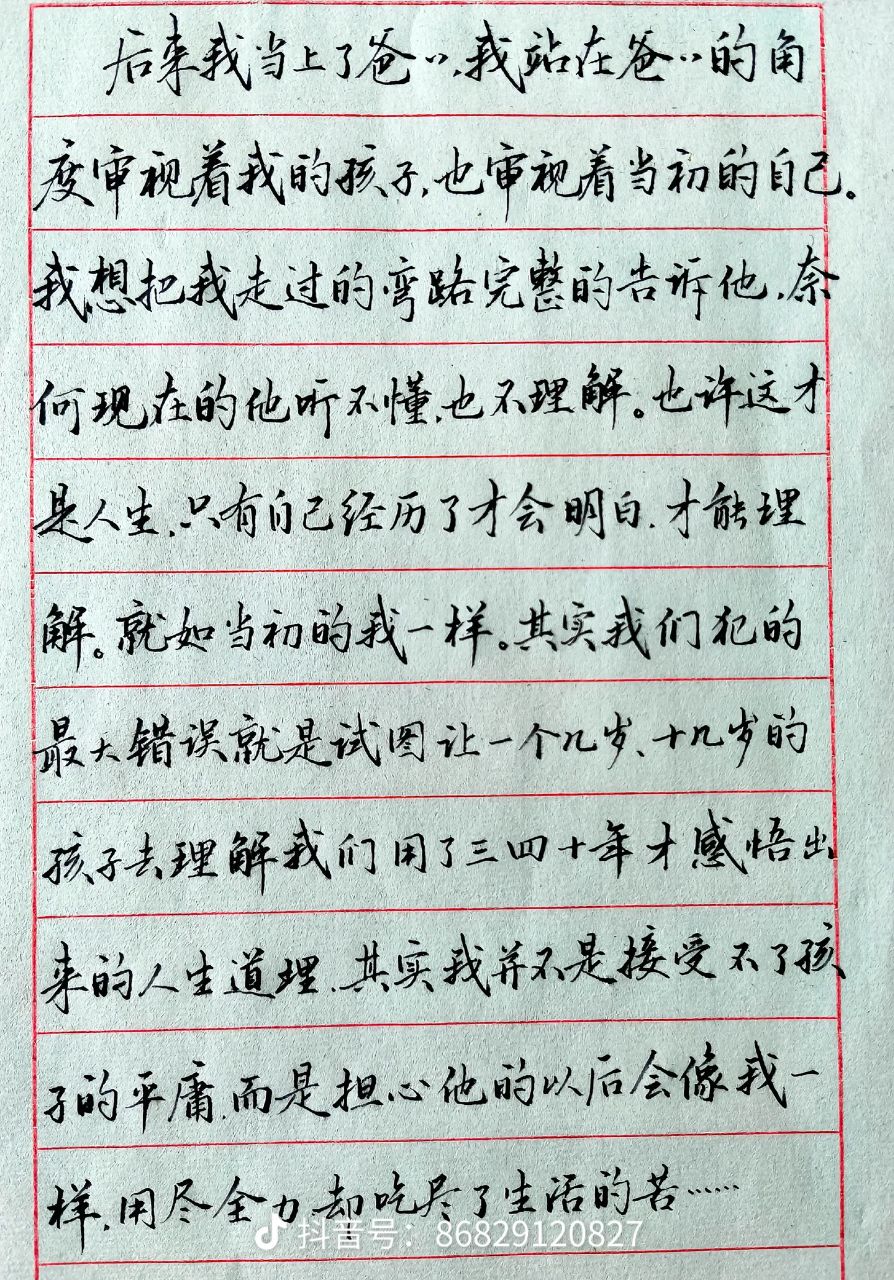 后来我当上了爸〃,我站在爸〃的角
度审视着我的孩子,也审视着当初的自己。
我想把我走过的弯路完整的告诉他,奈
何现在的他听不懂,也不理解。也许这才
是人生,只有自己经历了才会明白.才能理
解。就如当初的我一样。其实我们犯的
最大错误就是试图让一个几岁、十几岁的
孩子去理解我们用了三四十年才感悟出
来的人生道理.其实我并不是接受不了孩
子的平庸.而是担心他的以后会像我一
样,用尽全力,却吃尽了生活的苦……
抖音号:86829120827